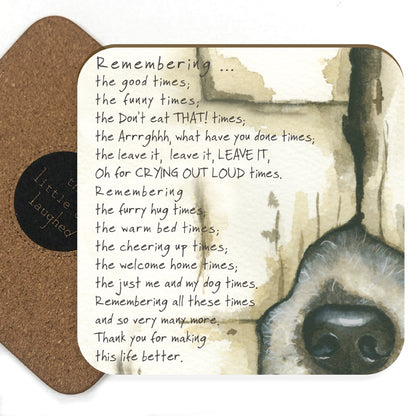 Remembering ...
the good times;
the funny times;
the Don't eat THAT! times;
the Arrrghhh, what have you done times;
the leave it, leave it, LEAVE IT,
Oh for CRYING OUT LOUD times.
Remembering
the furry hug times;
the warm bed times;
the cheering up times;
the welcome home times;
the just me and my dog times.
Remembering all these times
and so very many more.
Thank you for making
this life better.
little
laughed